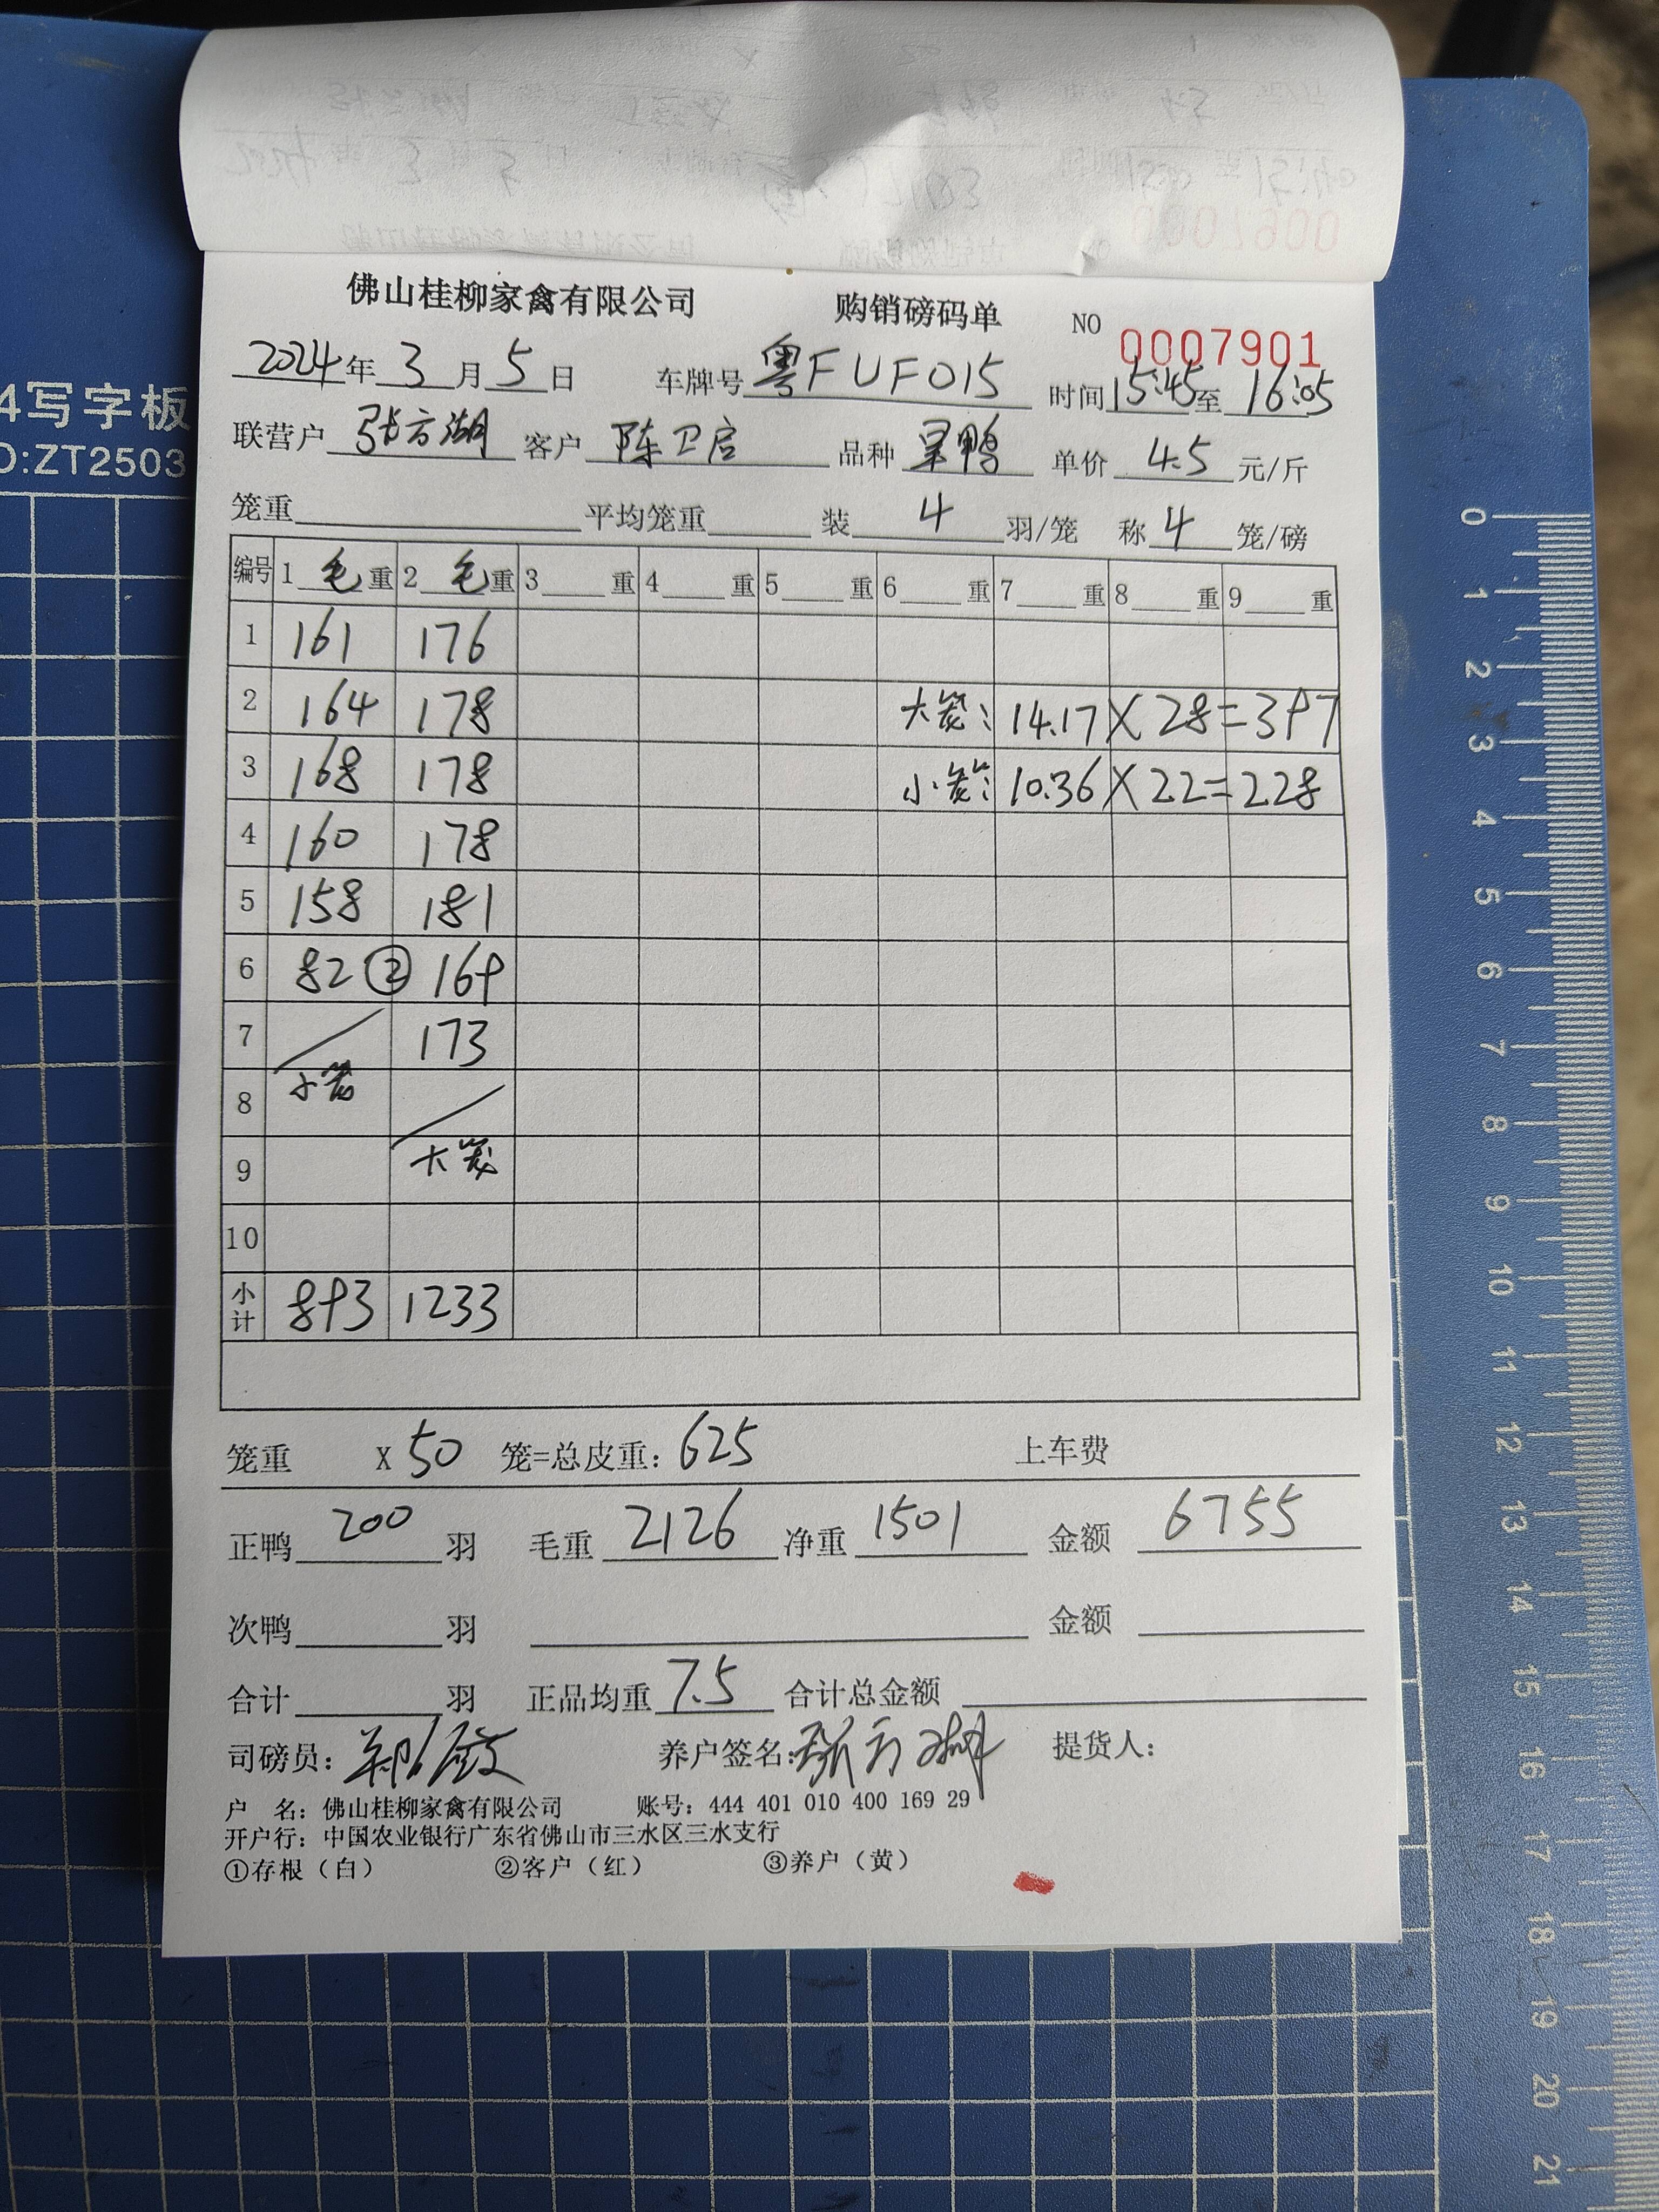 佛山桂柳家禽有限公司 购销磅码单 NO 0007901
2024年3月5日 车牌号 粤FUF015 时间15:45至16:05
联营户 张方湖 客户 陈卫启 品种 呆鸭 单价 4.5 元/斤
笼重 平均笼重 装 4 羽/笼 称 4 笼/磅
编号 1 毛 重 2 毛 重 3 重 4 重 5 重 6 重 7 重 8 重 9 重
1 161 176
2 164 178 大笼: 14.17×28=397
3 168 178 小笼: 10.36×22=228
4 160 178
5 158 181
6 82② 169
7 173
小笼
8
大笼
9
10
小计 893 1233
笼重 X 50 笼=总皮重: 625 上车费
正鸭 200 羽 毛重 2126 净重 1501 金额 6755
次鸭 羽 金额
合计 羽 正品均重 7.5 合计总金额
司磅员: 养户签名: 张方湖 提货人:
户 名: 佛山桂柳家禽有限公司 账号: 444 401 010 400 169 29
开户行: 中国农业银行广东省佛山市三水区三水支行
①存根（白） ②客户（红） ③养户（黄）
4写字板
D:ZT2503
0 1 2 3 4 5 6 7 8 9 10 11 12 13 14 15 16 17 18 19 20 21